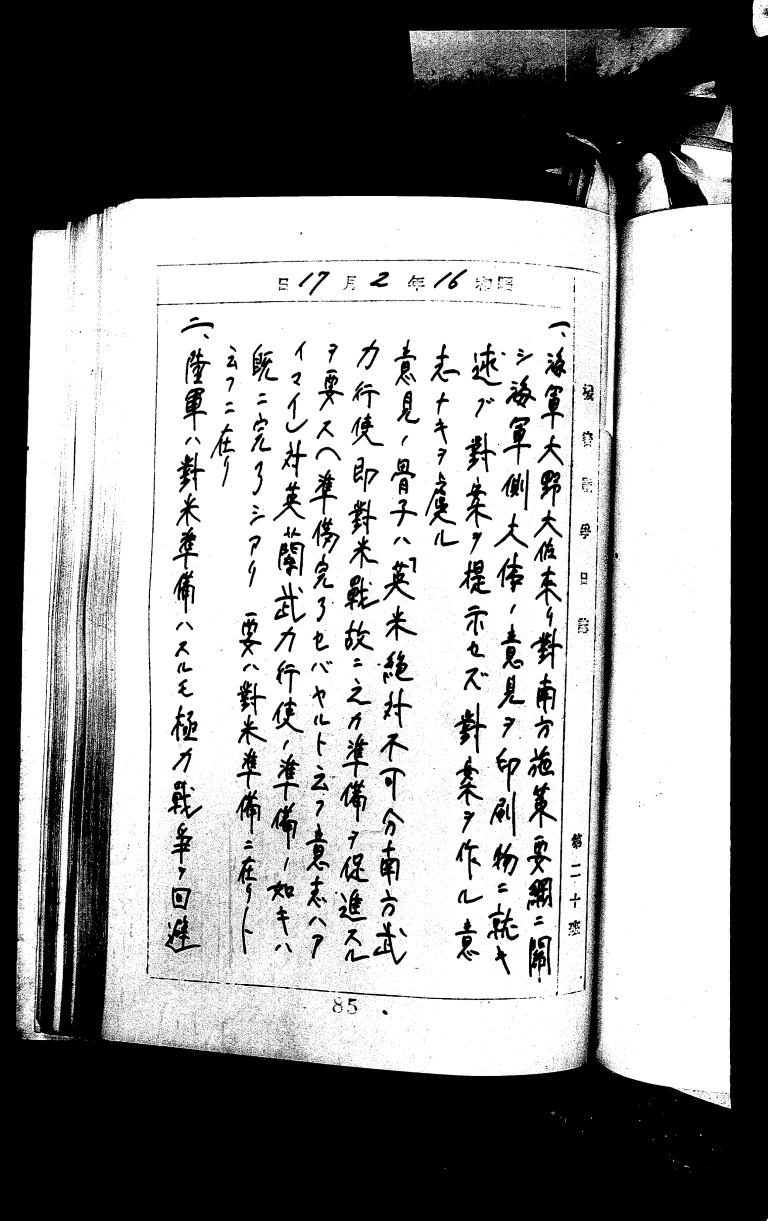 昭和16年2月17日
機密戰爭日誌
第二十班
一、海軍大野大佐来リ對南方施策要綱ニ關
シ海軍側大体ノ意見ヲ印刷物ニ就キ
述ブ對案ヲ提示セズ對案ヲ作ル意
志ナキヲ虞ル
意見ノ骨子ハ「英米絶対不可分南方武
力行使即對米戰故ニ之カ準備ヲ促進スル
ヲ要スヘ準備完了セバヤルト云フ意志ハア
イマイ」対英蘭武力行使ノ準備ノ如キハ
既ニ完了シアリ 要ハ對米準備ニ在リト
云フニ在リ
二、陸軍ハ對米準備ハスルモ極力戰爭ヲ回避
85